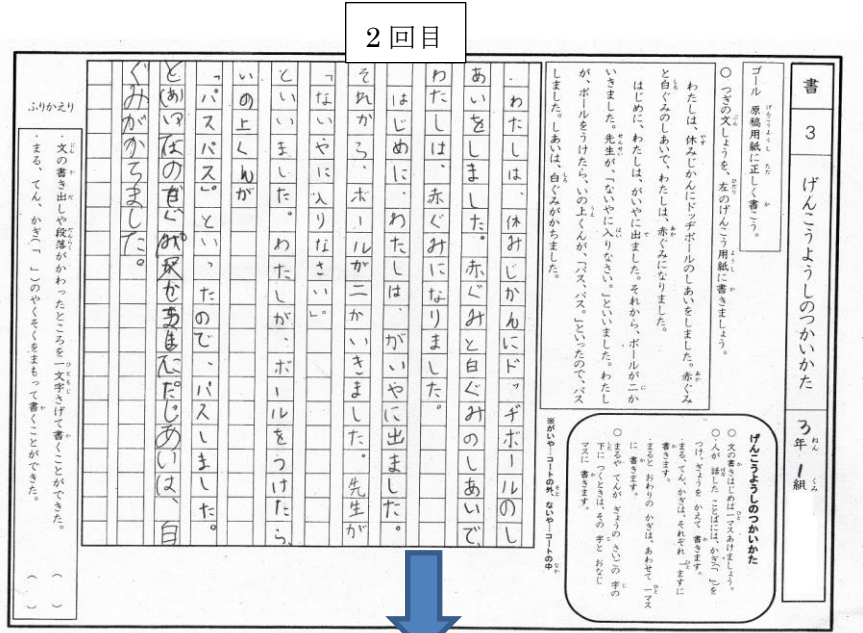 2回目
書 3 げんこうようしのつかいかた 3年 1組
ゴール 原稿用紙に正しく書こう。
○ つぎの文しょうを、左のげんこう用紙に書きましょう。
わたしは、休みじかんにドッヂボールのしあいをしました。赤ぐみ
と白ぐみのしあいで、わたしは、赤ぐみになりました。
はじめに、わたしは、がいやに出ました。それから、ボールが二か
いきました。先生が、「ないやに入りなさい。」といいました。わたし
が、ボールをうけたら、いの上くんが、「パス、パス。」といったので、パス
しました。しあいは、白ぐみがかちました。
げんこうようしのつかいかた
○ 文の書きはじめは一マスあけましょう。
○ 人が 話した ことばには、かぎ(「 」)を
つけ、ぎょうを かえて 書きます。
・まる、てん、かぎは、それぞれ 一ますに
書きます。
・まると おわりの かぎは、あわせて 一マス
に 書きます。
○ まるや てんが ぎょうの さいごの 字の
下に つくときは、その 字と おなじ
マスに 書きます。
※がいや…コートの外、ないや…コートの中
わたしは、休みじかんにドッヂボールのし
あいをしました。赤ぐみと白ぐみのしあいで、
わたしは、赤ぐみになりました。
はじめに、わたしは、がいやに出ました。
それから、ボールが二かいきました。先生が
「ないやに入りなさい」。
といいました。わたしが、ボールをうけたら、
いの上くんが
「パスパス」。といったので、パスしました。
しあいは、白
ぐみがかちました。
ふりかえり
・文の書き出しや段落がかわったところを一文字さげて書くことができた。( )
・まる、てん、かぎ(「 」)のやくそくをまもって書くことができた。( )